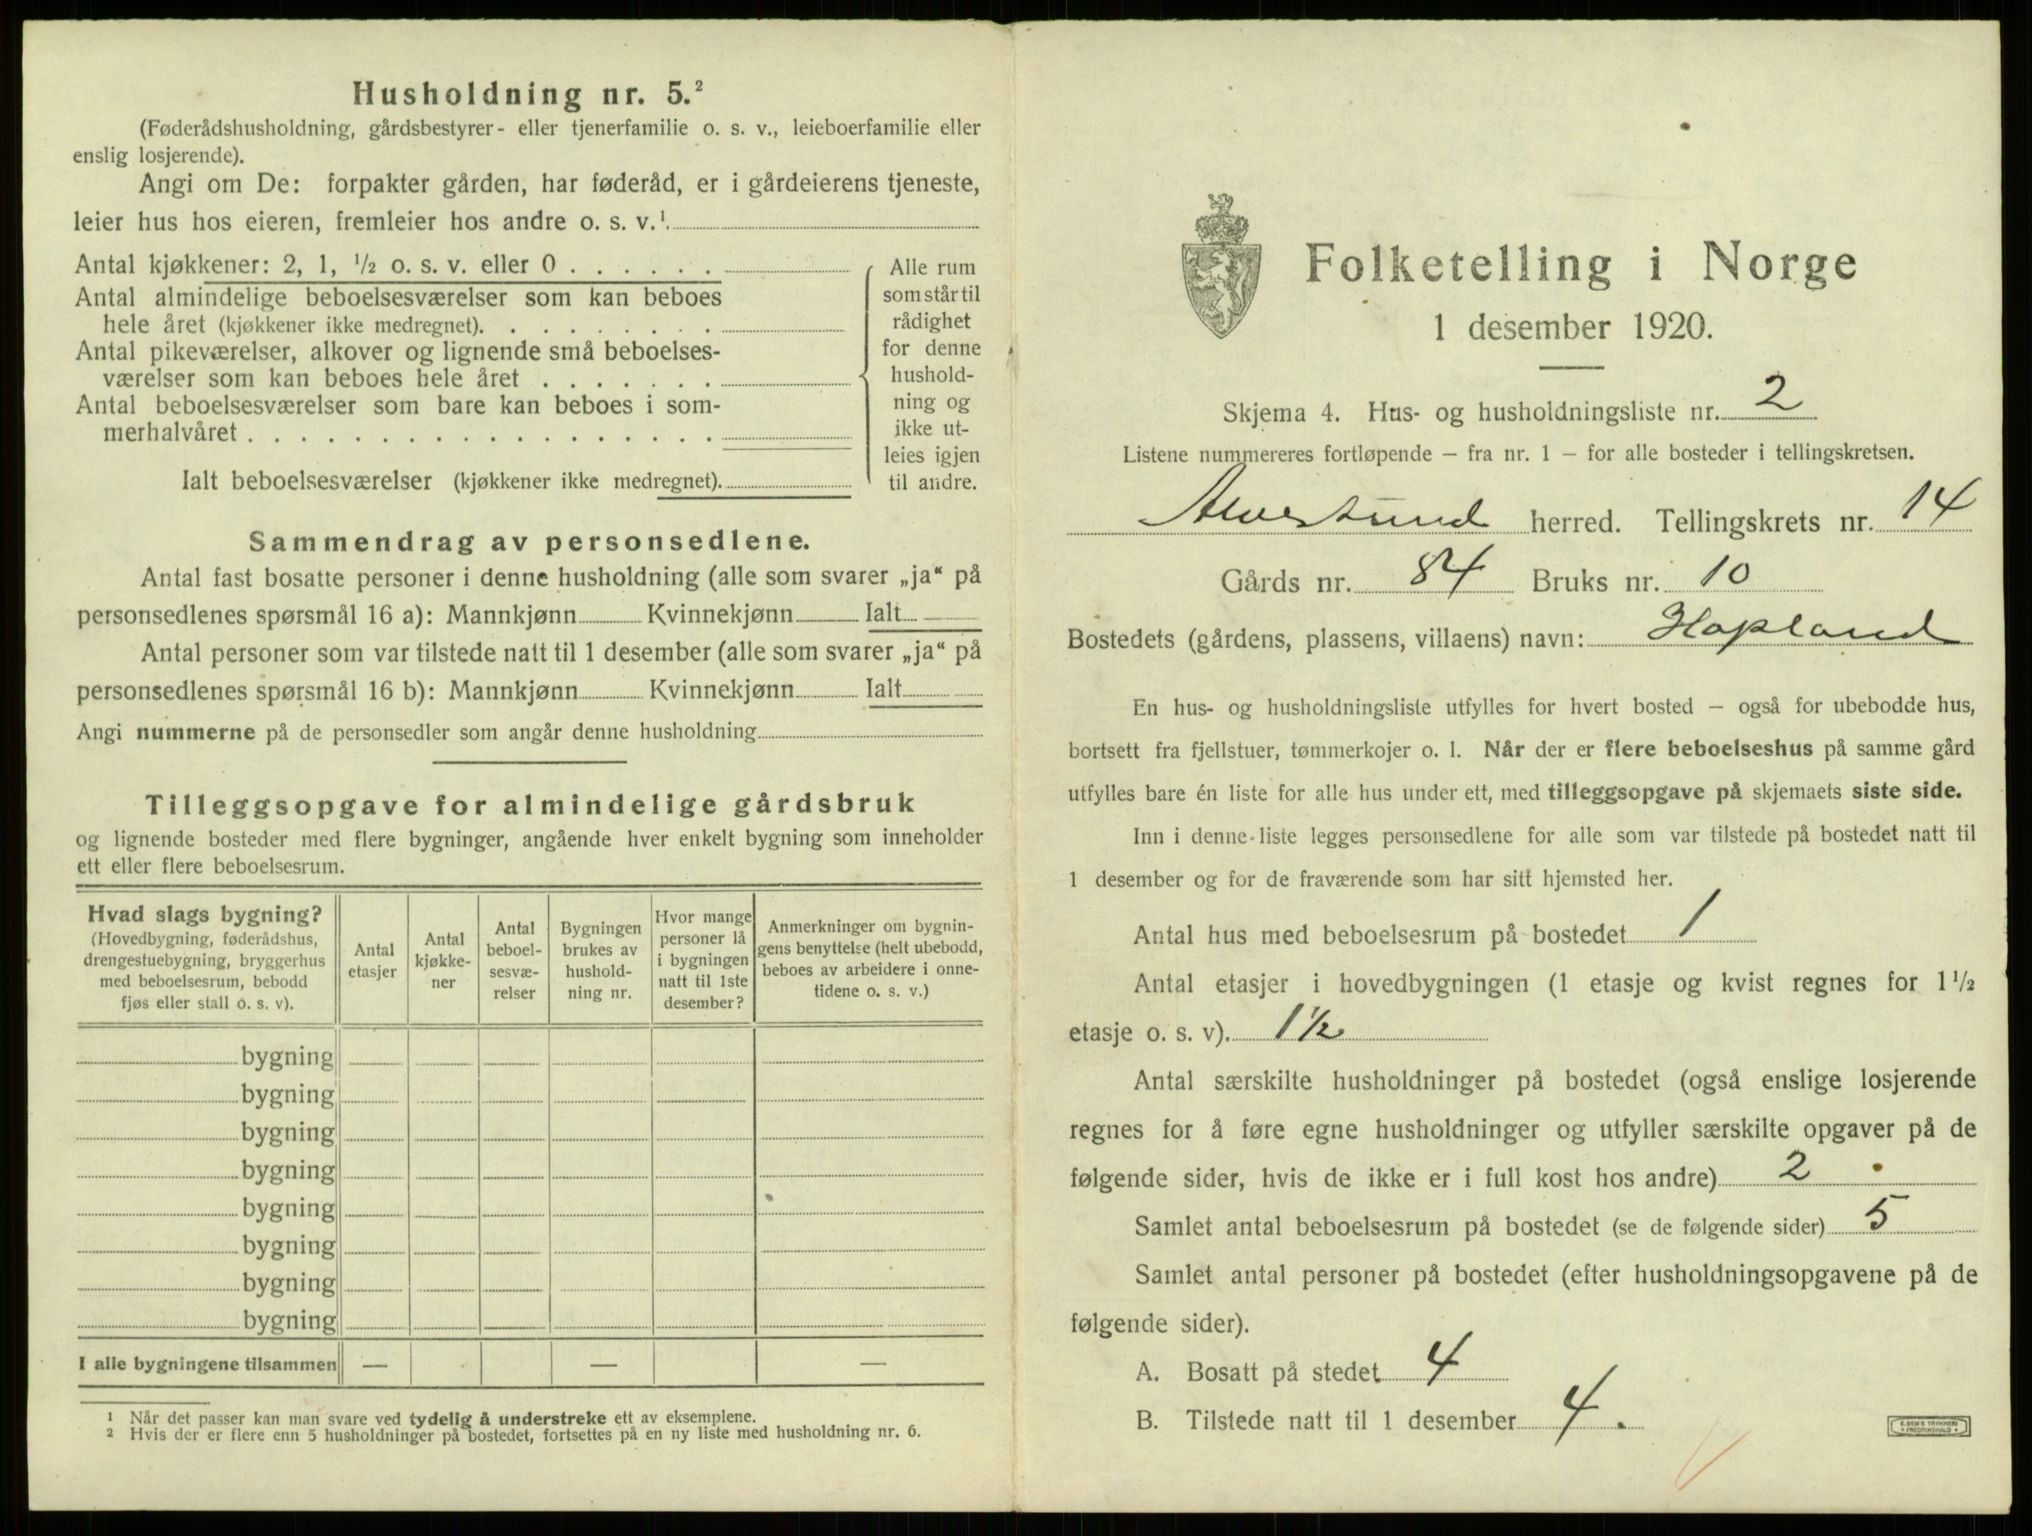 Husholdning nr. 5.²
(Føderådshusholdning, gårdsbestyrer- eller tjenerfamilie o. s. v., leieboerfamilie eller
enslig losjerende).
Angi om De: forpakter gården, har føderåd, er i gårdeierens tjeneste,
leier hus hos eieren, fremleier hos andre o. s. v.¹
Antal kjøkkener: 2, 1, ½ o. s. v. eller 0
Antal almindelige beboelsesværelser som kan beboes
hele året (kjøkkener ikke medregnet).
Antal pikeværelser, alkover og lignende små beboelses-
værelser som kan beboes hele året
Antal beboelsesværelser som bare kan beboes i som-
merhalvåret
Ialt beboelsesværelser (kjøkkener ikke medregnet).
Alle rum
som står til
rådighet
for denne
hushold-
ning og
ikke ut-
leies igjen
til andre.
Sammendrag av personsedlene.
Antal fast bosatte personer i denne husholdning (alle som svarer „ja“ på
personsedlenes spørsmål 16 a): Mannkjønn Kvinnekjønn Ialt
Antal personer som var tilstede natt til 1 desember (alle som svarer „ja“ på
personsedlenes spørsmål 16 b): Mannkjønn Kvinnekjønn Ialt
Angi nummerne på de personsedler som angår denne husholdning
Tilleggsopgave for almindelige gårdsbruk
og lignende bosteder med flere bygninger, angående hver enkelt bygning som inneholder
ett eller flere beboelsesrum.
Hvad slags bygning?
(Hovedbygning, føderådshus,
drengestuebygning, bryggerhus
med beboelsesrum, bebodd
fjøs eller stall o. s. v).
Antal
etasjer
Antal
kjøkke-
ner
Antal
beboel-
sesvæ-
relser
Bygningen
brukes av
hushold-
ning nr.
Hvor mange
personer lå
i bygningen
natt til 1ste
desember?
Anmerkninger om bygnin-
gens benyttelse (helt ubebodd,
beboes av arbeidere i onne-
tidene o. s. v.)
bygning
bygning
bygning
bygning
bygning
bygning
bygning
bygning
I alle bygningene tilsammen — — —
¹ Når det passer kan man svare ved tydelig å understreke ett av eksemplene.
² Hvis der er flere enn 5 husholdninger på bostedet, fortsettes på en ny liste med husholdning nr. 6.
Folketelling i Norge
1 desember 1920.
Skjema 4. Hus- og husholdningsliste nr. 2
Listene nummereres fortløpende – fra nr. 1 – for alle bosteder i tellingskretsen.
Alversund herred. Tellingskrets nr. 14
Gårds nr. 84 Bruks nr. 10
Bostedets (gårdens, plassens, villaens) navn: Hopland
En hus- og husholdningsliste utfylles for hvert bosted – også for ubebodde hus,
bortsett fra fjellstuer, tømmerkojer o. l. Når der er flere beboelseshus på samme gård
utfylles bare én liste for alle hus under ett, med tilleggsopgave på skjemaets siste side.
Inn i denne liste legges personsedlene for alle som var tilstede på bostedet natt til
1 desember og for de fraværende som har sitt hjemsted her.
Antal hus med beboelsesrum på bostedet 1
Antal etasjer i hovedbygningen (1 etasje og kvist regnes for 1½
etasje o. s. v). 1½
Antal særskilte husholdninger på bostedet (også enslige losjerende
regnes for å føre egne husholdninger og utfyller særskilte opgaver på de
følgende sider, hvis de ikke er i full kost hos andre) 2
Samlet antal beboelsesrum på bostedet (se de følgende sider) 5
Samlet antal personer på bostedet (efter husholdningsopgavene på de
følgende sider).
A. Bosatt på stedet 4
B. Tilstede natt til 1 desember 4.
E. SEM'S TRYKKERI
FREDRIKSHALD